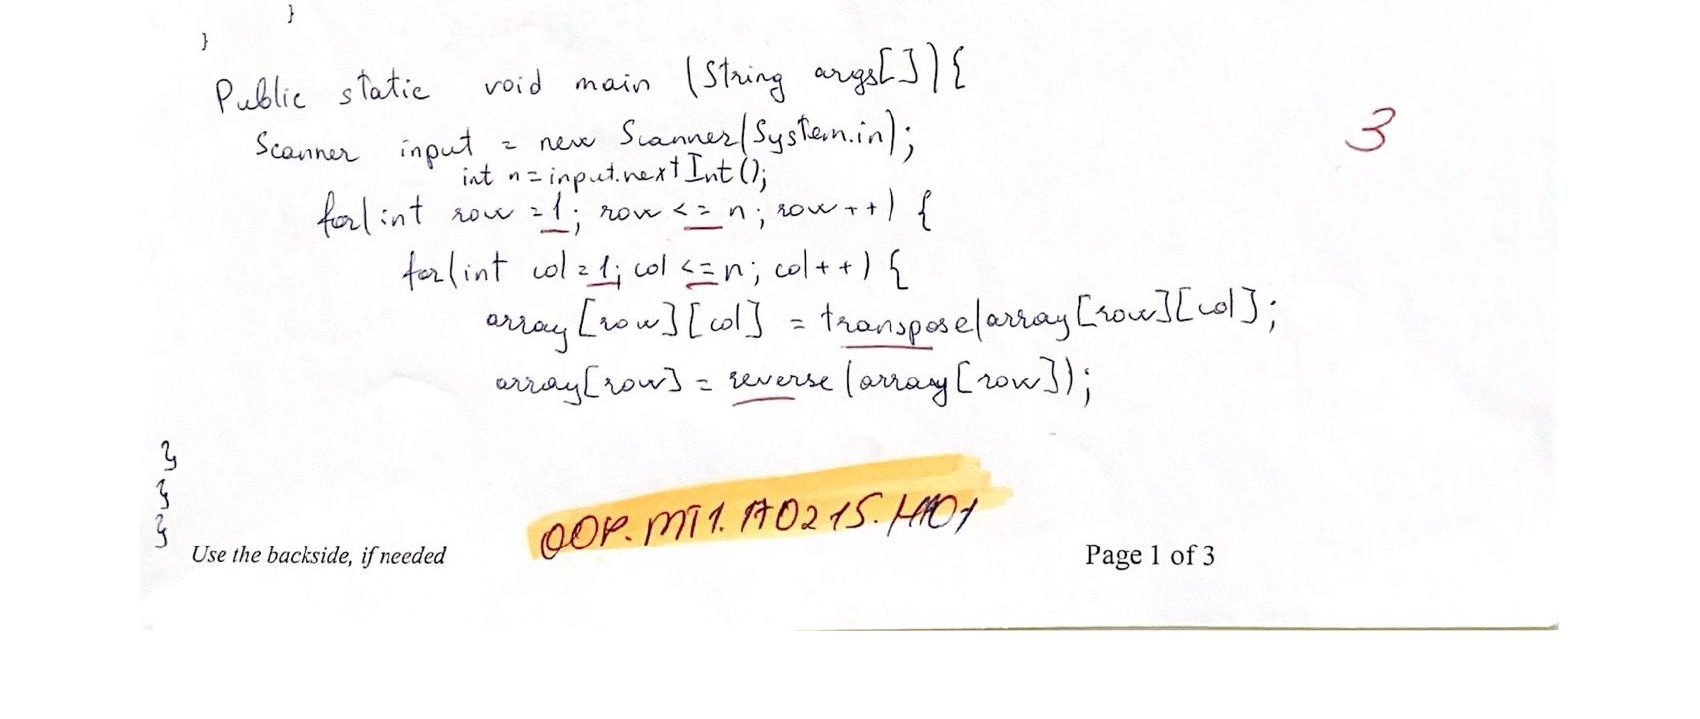 }
}
Public static void main (String args[]){
3
Scanner input = new Scanner(System.in);
int n=input.nextInt();
for(int row =1; row <= n; row++) {
for(int col=1; col <=n; col++) {
array[row][col] = transpose(array[row][col];
array[row] = reverse(array[row]);
}
}
}
OOP.MT1.170215.H101
Use the backside, if needed
Page 1 of 3